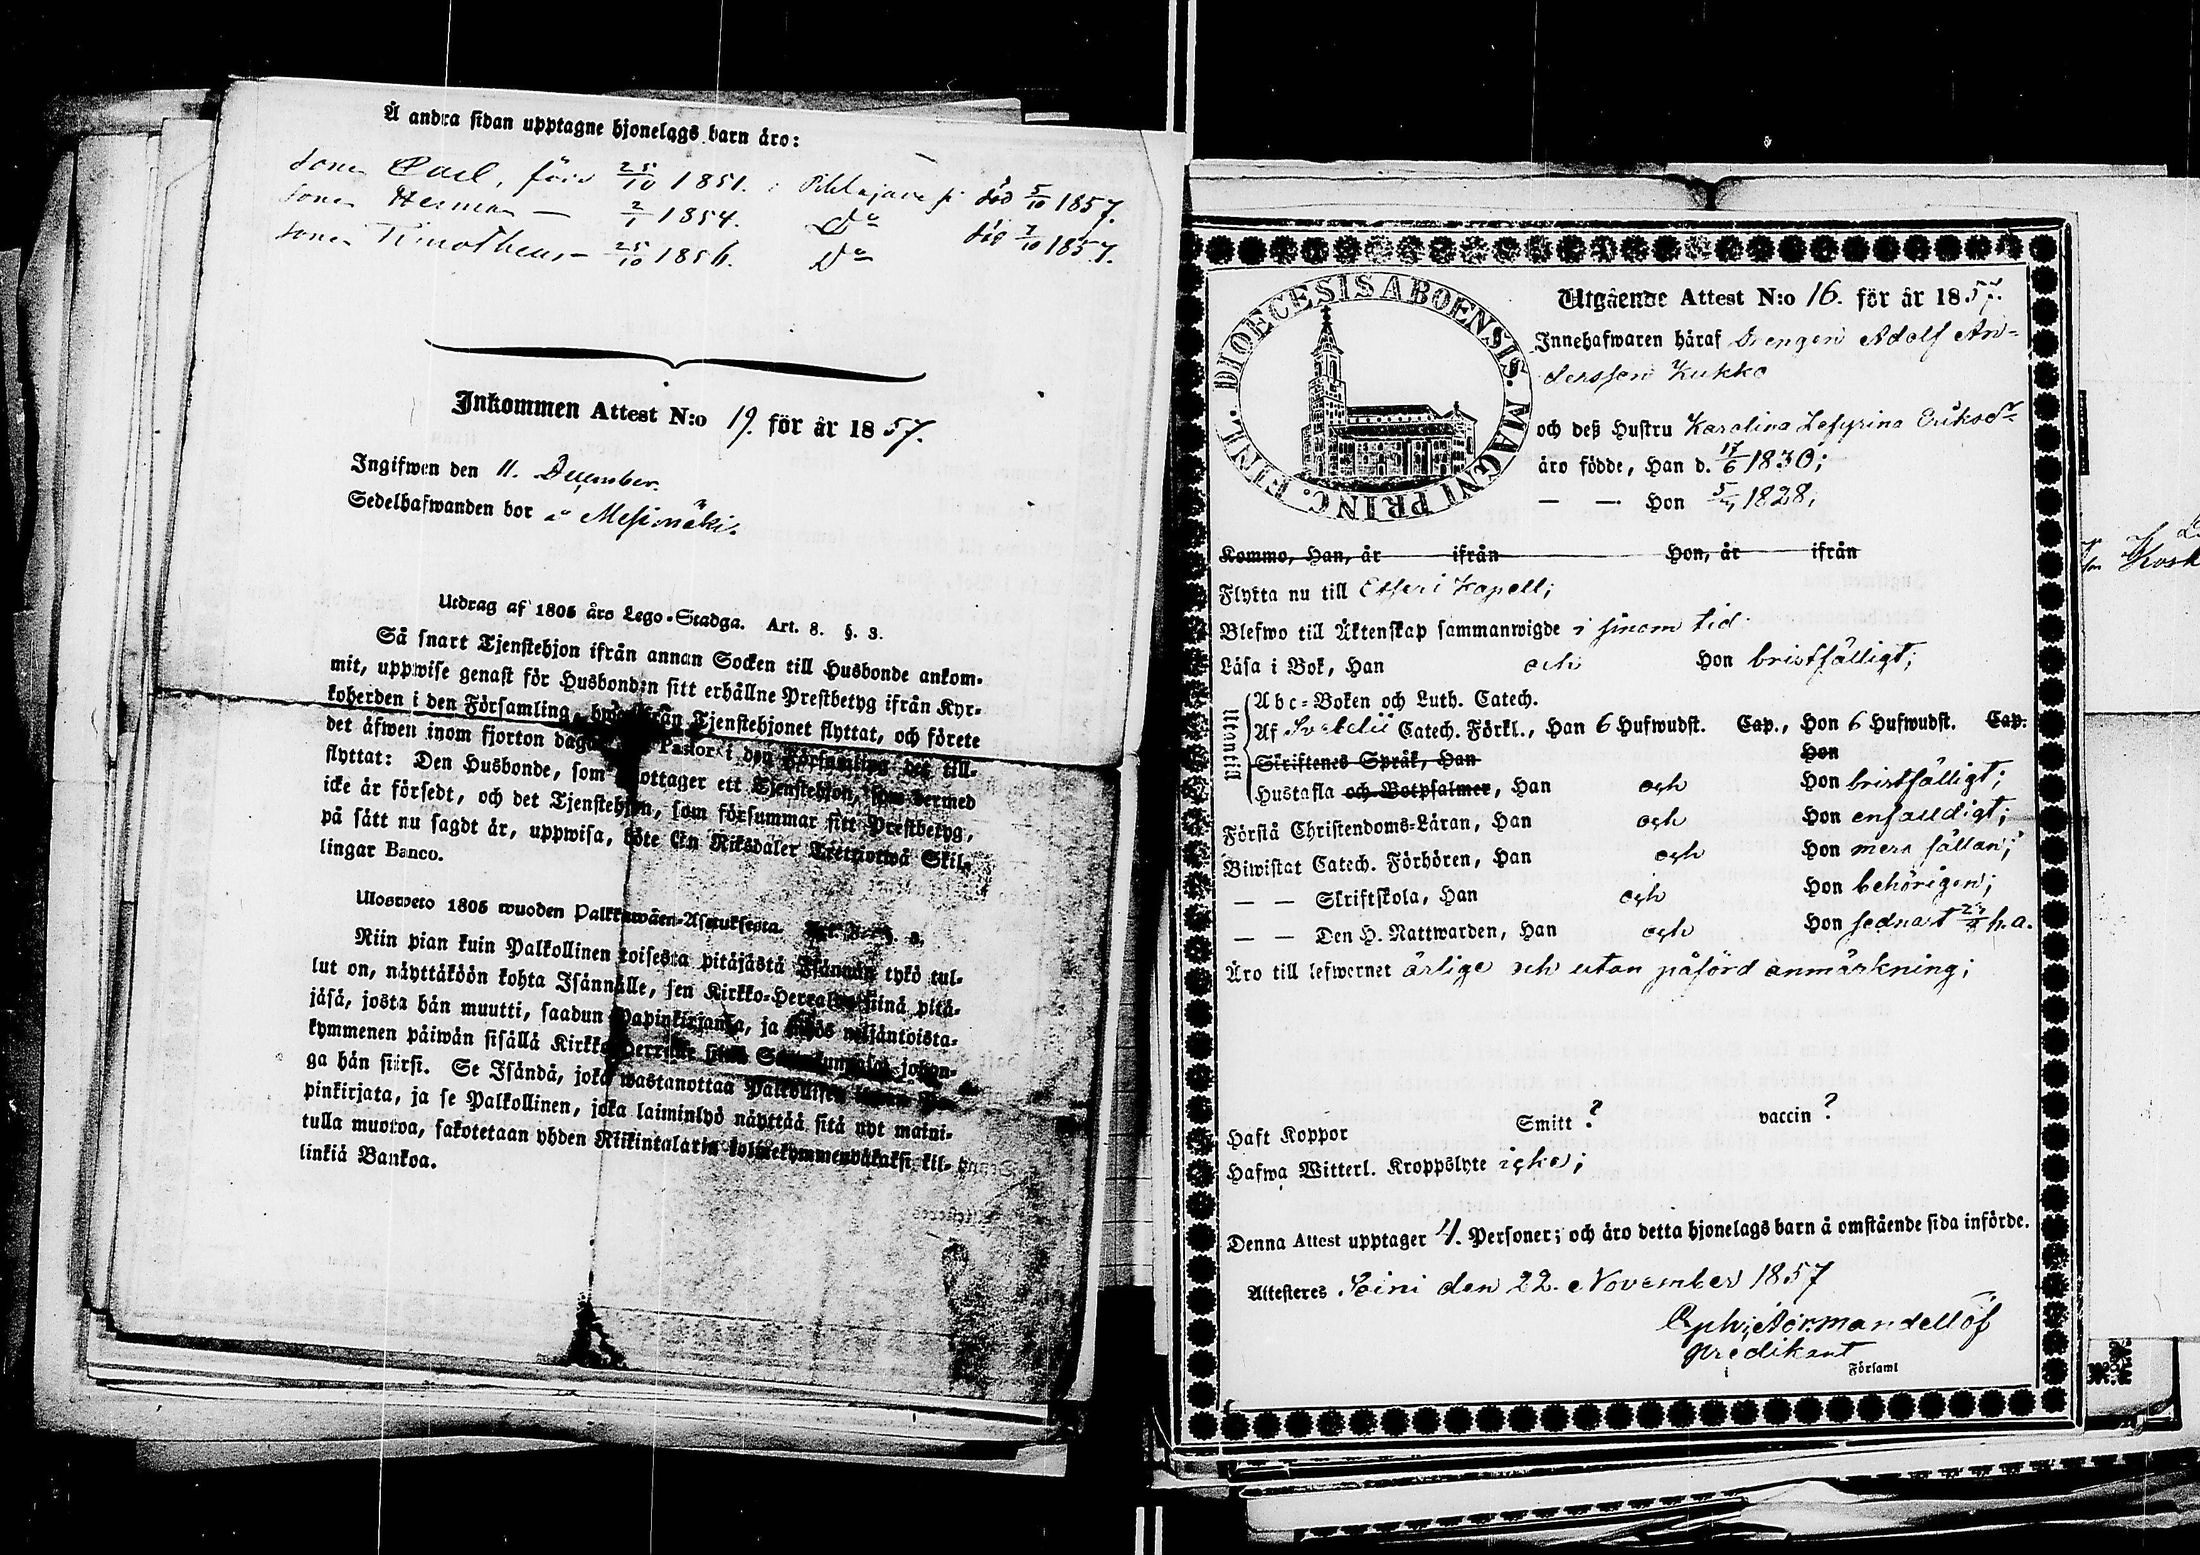 Å andra sidan upptagne hjonelags barn äro:
Sonen Carl, före 25/10 1851. död 5/10 1857.
Sonen Herman — 2/1 1854. Do död 7/10 1857.
Sonen Timotheus — 25/10 1856. Do
Inkommen Attest N:o 19. för år 1857.
Ingifwen den 11. December.
Sedelhafwanden bor å Mesimäki.
Utdrag af 1805 års Lego-Stadga. Art. 8. §. 3.
Så snart Tjenstehjon ifrån annan Socken till Husbonde ankom-
mit, uppwise genast för Husbonden sitt erhållne Prestbetyg ifrån Kyr-
koherden i den Församling, hwarifrån Tjenstehjonet flyttat, och förete
det äfwen inom fjorton dagar Pastor i den Församling det till-
flyttat: Den Husbonde, som mottager ett Tjenstehjon, som dermed
icke är försedt, och det Tjenstehjon, som försummar sitt Prestbetyg,
på sätt nu sagdt är, uppwisa, böte En Riksdaler Trettiotwå Skil-
lingar Banco.
Ulosweto 1805 wuoden Palkkawäen-Asetuksesta. Art. 8. §. 3.
Niin pian kuin Palkollinen toisesta pitäjästä Isännän tykö tul-
lut on, näyttäköön kohta Isännälle, sen Kirkko-Herralta siinä pitä-
jäsä, josta hän muutti, saadun Papinkirjansa, ja myös neljäntoista-
kymmenen päiwän sisällä Kirkkoherralle siinä Seurakunnasa, johon-
ga hän siirsi. Se Isändä, joka wastanottaa Palkollisen ilman Pa-
pinkirjata, ja se Palkollinen, joka laiminlyö näyttää sitä nyt maini-
tulla muotoa, sakotetaan yhden Riikintalarin kolmekymmendäkaksi kil-
linkiä Bankoa.
DIOECESIS ABOENSIS. MAGNI PRINC. FINL.
Utgående Attest N:o 16. för år 1857.
Innehafwaren häraf Drengen Adolf An-
dersson Kukko
och deß Hustru Karolina Zefyrina Eriksdr
äro födde, Han d. 17/6 1830;
— — Hon 5/4 1828;
Komma, Han, år ifrån Hon, år ifrån
Flytta nu till Etseri Kapell;
Blefwo till Äktenskap sammanwigde i sinom tid
Läsa i Bok, Han och Hon bristfälligt;
Utantill
Abc-Boken och Luth. Catech.
Af Svebelii Catech. Förkl., Han 6 Hufwudst. Cap., Hon 6 Hufwudst. Cap.
Skriftenes Språk, Han Hon
Hustafla och Botpsalmer, Han och Hon bristfälligt;
Förstå Christendoms-Läran, Han och Hon enfaldigt;
Biwistat Catech. Förhören, Han och Hon mera sällan;
— — Skriftskola, Han och Hon behörigen;
— — Den H. Nattwarden, Han och Hon sednast h.a.
Äro till lefwernet ärlige och utan påförd anmärkning;
Haft Koppor Smitt ? vaccin ?
Hafwa Witterl. Kroppslyte icke;
Denna Attest upptager 4. Personer; och äro detta hjonelags barn å omstående sida införde.
Attesteres Soini den 22. November 1857
Predikant
i Församl